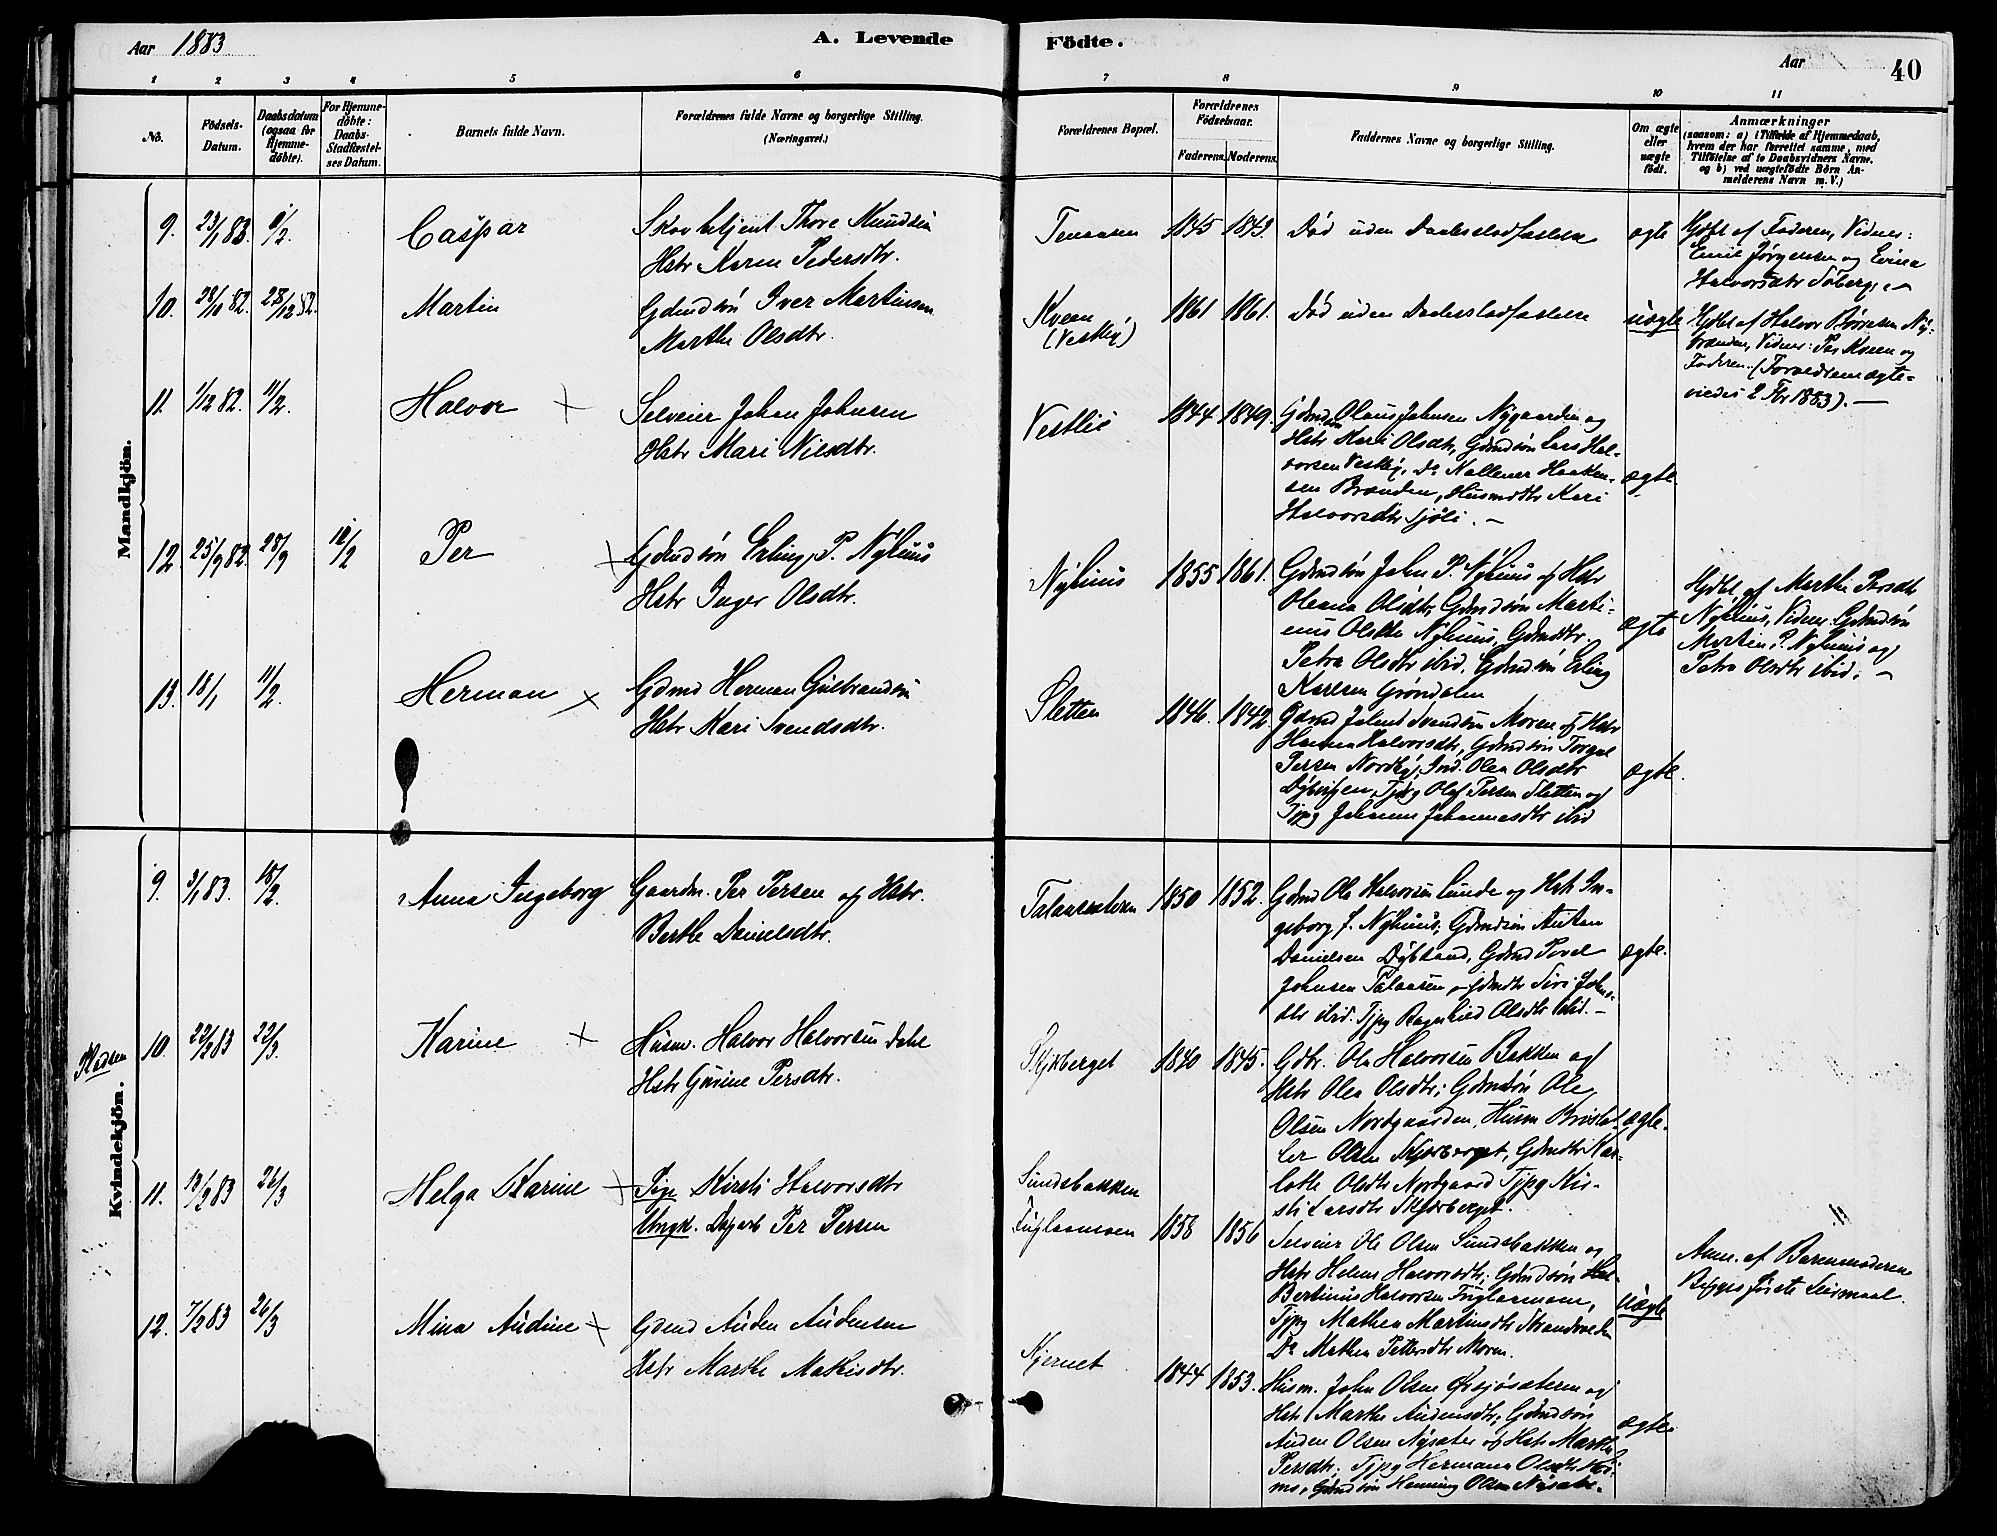 Aar 1883
A. Levende Födte.
Aar
40
1 2 3 4 5 6 7 8 9 10 11
No.
Födsels-
Datum.
Daabsdatum
(ogsaa for
Hjemme-
döbte).
For Hjemme-
döbte:
Daabs-
Stadfæstel-
ses Datum.
Barnets fulde Navn.
Forældrenes fulde Navne og borgerlige Stilling.
(Næringsvei.)
Forældrenes Bopæl.
Forældrenes
Födselsaar.
Faderens. Moderens.
Faddernes Navne og borgerlige Stilling.
Om ægte
eller
uægte
födt.
Anmærkninger
(saasom: a) i Tilfælde af Hjemmedaab,
hvem der har forrettet samme, med
Tilföielse af to Daabsvidners Navne.
og b) ved uægtefödte Börn An-
melderens Navn m. V.)
Mandkjön.
9. 23/1 83. 9/2. Caspar
Thore Knudsen
Hstr Karen Pedersdtr.
1845 1843. Död uden Daabsstadfæstelse ægte
Hjdbt af Faderen, Vidner:
Emil Jørgensen og
Halvorsdtr
10. 28/10 82. 28/12 82. Martin
Gdmdsön Iver Martinsen
Marthe Olsdtr.
Kveen
(Vestby)
1861 1861. Död uden Daabsstadfæstelse uægte
Hjdbt af Halvor
Vidner: Per Kveen og
Faderen. (Forældrene ægte-
viedes 2 Fbr 1883). –
11. 1/12 82. 11/2. Halvor
Selveier Johan Johnsen
Hstr Mari Nilsdtr.
Vestlie
1844 1849. Gdmdsön Olaus Johnsen Nygaarden og
Hstr Kari Olsdtr, Gdmdsön Lars Hal-
vorsen Vestby, Do Haaken-
sen Brænden, Husmdtr Kari
Halvorsdtr Sjöli. –
ægte.
12. 25/9 82. 28/9 12/2 Per
Gdmdsön Erling P. Nyhuus
Hstr Inger Olsdtr.
Nyhuus
1855 1861. Gdmdsön John P. Nyhuus og Hstr
Oleana Olsdtr, Gdmdsön Marti-
nus Nyhuus, Gdmdtr.
Petra Olsdtr ibid, Gdmdsön Erling
Karlsen Gröndalen
ægte
Hjdbt af Marthe Persdtr
Nyhuus, Vidner Gdmdsön
Morten P. Nyhuus og
Petra Olsdtr ibid. –
13. 18/1 11/2. Herman
Gdmd Herman Gulbrandsen
Hstr Kari Svendsdtr.
Sletten
1846. 1842 Gdmd Svendsen Moren og Hstr
Halvorsdtr, Gdmdsön
Persen Nordby, Ind. Olea Olsdtr
Olof Persen Sletten og
Tjpg Johanne Johannesdtr ibid
ægte.
Kvindekjön.
9. 3/1 83. 18/2. Anna Ingeborg
Gaardm. Per Persen og Hstr.
Berthe Danielsdtr.
1850 1852. Gdmd Ole Halvorsen Lunde og Hstr In-
geborg J. Nyhuus, Gdmdsön
Danielsen Gdmd Povel
Johnsen og Gdmdtr Siri Johns-
dtr ibid. Tjpg Ragnhild Olsdtr ibid. –
ægte.
10. 22/2 83 22/3. Karine
Husm. Halvor Halvorsen Dahl
Hstr Gurine Persdtr.
1840 1845. Gdbr. Ole Halvorsen Bakken og
Hstr Olea Olsdtr; Gdmdsön Ole
Olsen Nordgaarden, Husm
Olsen Gdmdtr Kar-
lotte Olsdtr Nordgaard Tjpg Kir-
sti Larsdtr
ægte.
11. 12/2 83 26/3 Helga Karine
Pige Kirsti Halvorsdtr
Ungk. Dagarb Per Persen
Sundsbakken
Fuglaamoen
1858 1856 Selveier Ole Olsen Sundsbakken og
Hstr Helene Halvorsdtr; Gdmdsön
Bertinus Halvorsen Fuglaamoen,
Tjpg Mathea Martinsdtr
Do Mathea Pettersdtr Moren.
uægte
Anm. af Barnemoderen
Begges förste Leiermaal.
12. 7/2 83 26/3 Mina Audine
Gdmd Auden Audensen
Hstr Marthe Mathisdtr.
Kjernet
1844 1853. Husm. John Olsen og
Hstr Marthe Audensdtr; Gdmdsön
Auden Olsen Nysæter og Hstr Marthe
Persdtr; Tjpg Hermana Olsdtr
Gdmdsön Henning Olsen
ægte